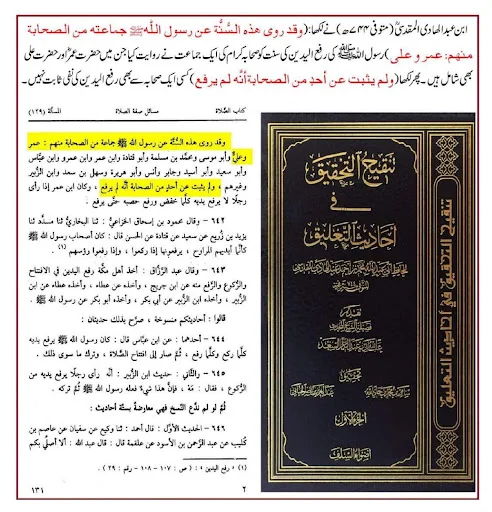 ابن عبدالہادی المقدسیؒ (متوفی ۷۴۴ھ) نے لکھا: (وقد روى هذه السُّنَّة عن رسول اللّٰهﷺ جماعته من الصحابة
منهم: عمر و علی) رسول اللہﷺ کی رفع الیدین کی سنت کو صحابہ کرام کی ایک جماعت نے روایت کیا جن میں حضرت عمرؓ اور حضرت علی
بھی شامل ہیں۔ پھر لکھا (ولم يثبت عن أحدٍ من الصحابة أنَّه لم يرفع) کسی ایک صحابہ سے بھی رفع الیدین کی نفی ثابت نہیں۔
المسألة (١٢٩) مسائل صفة الصلاة كتاب الصلاة
وقد روى هذه السُّنَّة عن رسول الله ﷺ جماعة من الصحابة منهم : عمر
وعليٌّ وأبو موسى ومحمد بن مسلمة وأبو قتادة وابن عمر وابن عمرو وابن عبَّاس
وأبو سعيد وأبو أسيد وجابر وأنس وأبو هريرة وسهل بن سعد وابن الزُّبير
وغيرهم ، ولم يثبت عن أحدٍ من الصحابة أنَّه لم يرفع ، وكان ابن عمر إذا رأى
رجلًا لا يرفع يديه كلَّما خفض ورفع حصبه حتَّى يرفع .
٦٤٢ - وقال محمود بن إسحاق الخزاعيُّ : ثنا البخاريُّ ثنا مسدَّد ثنا
يزيد بن زُريع عن سعيد عن قتادة عن الحسن قال : كان أصحاب رسول الله ﷺ
كأنَّما أيديهم المراوح ، يرفعونها إذا ركعوا ، وإذا رفعوا رؤوسهم (١) .
٦٤٣ - وقال عبد الرَّزَّاق : أخذ أهل مكَّة رفع اليدين في الافتتاح
والرُّكوع والرَّفع منه عن ابن جريج ، وأخذه عن عطاء ، وأخذه عطاء عن ابن
الزُّبير ، وأخذه ابن الزُّبير عن أبي بكر ، وأخذه أبو بكر عن رسول الله ﷺ .
قالوا : أحاديثكم منسوخة ، صرَّح بذلك حديثان :
٦٤٤ - أحدهما : عن ابن عبَّاس قال : كان رسول الله ﷺ يرفع يديه
كلَّما ركع وكلَّما رفع ، ثُمَّ صار إلى افتتاح الصَّلاة ، وترك ما سوى ذلك .
٦٤٥ - والثَّاني : حديث ابن الزُّبير : أنَّه رأى رجلًا يرفع يديه من
الرُّكوع ، فقال : مَهْ ، فإنَّ هذا شيءٌ فعله رسول الله ﷺ ثُمَّ تركه .
ثُمَّ لو لم ندَّع النَّسخ فهي معارضةٌ بستَّة أحاديث :
٦٤٦ - الحديث الأوَّل : قال أحمد : ثنا وكيع عن سفيان عن عاصم بن
كُليب عن عبد الرَّحمن بن الأسود عن علقمة : قال : قال عبد الله : ألا أصلِّي بكم
(١) « رفع اليدين » : ( ص : ١٠٧ - ١٠٨ - رقم : ٢٩ ) .
١٣١ ٢
تنقيح التحقيق
في
أحاديث التعليق
تقديم
تحقيق
الجزء الأول
أضواء السلف
تنقيح التحقيق في أحاديث التعليق